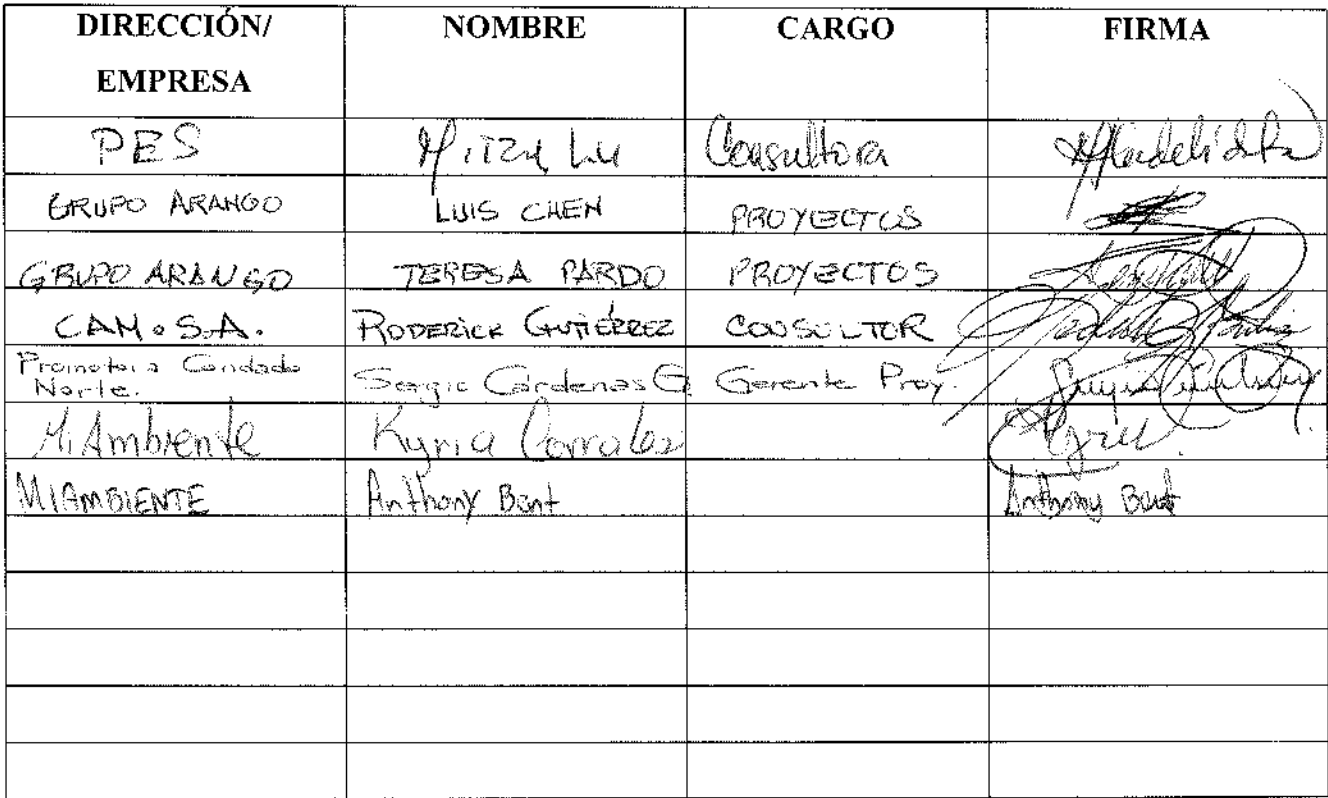 DIRECCIÓN/ EMPRESA NOMBRE CARGO FIRMA
PES Mitzy Lu Consultora
GRUPO ARANGO LUIS CHEN PROYECTOS
GRUPO ARANGO TERESA PARDO PROYECTOS
CAM. S.A. RODERICK GUTIÉRREZ CONSULTOR
Promotora Condado Norte. Sergio Cárdenas G Gerente Proy.
MiAmbiente Kyria Corrales
MIAMBIENTE Anthony Bent Anthony Bent